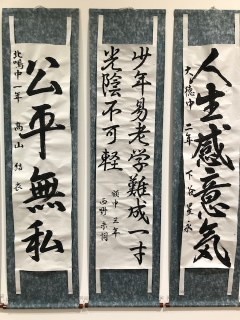 人生感意気
大徳中 二年
少年易老学難成一寸
光陰不可軽
額中 三年
公平無私
北鳴中一年 高山 結衣